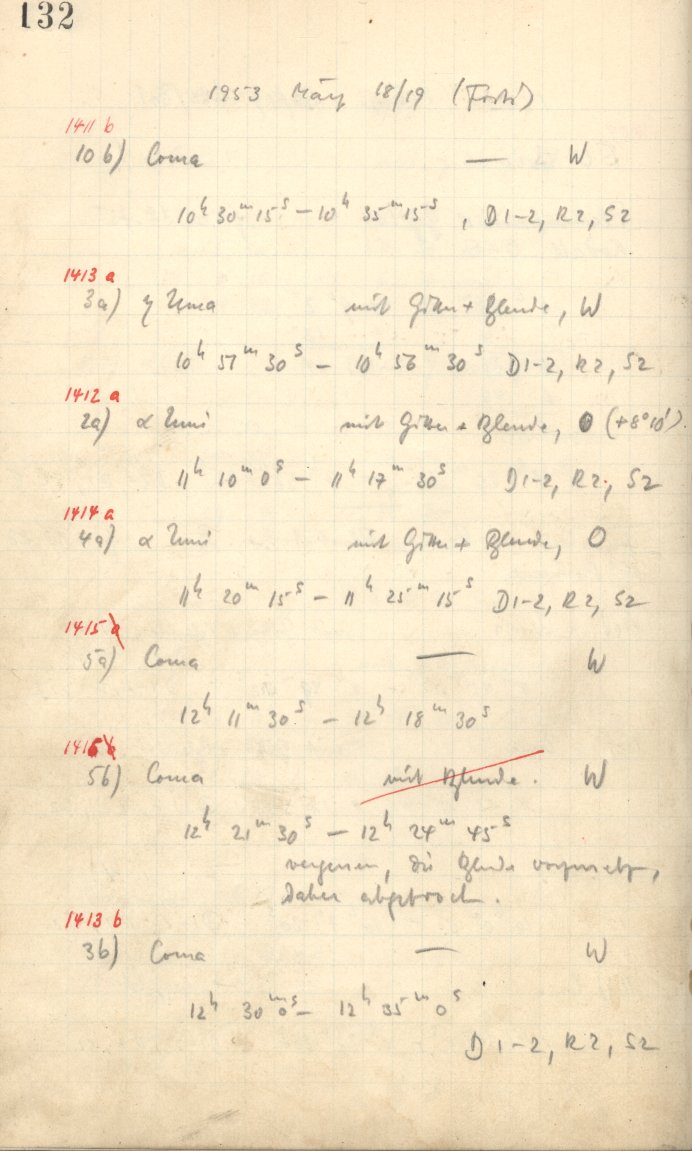 132
1953 März 18/19 (Forts.)
1411 b
10b) Coma — W
10h 30m 15s – 10h 35m 15s, D1-2, R2, S2
1413 a
3a) η Uma mit Gitter + Blende, W
10h 51m 30s – 10h 56m 30s D1-2, R2, S2
1412 a
2a) α mit Gitter + Blende, O (+8°10')
11h 10m 0s – 11h 17m 30s D1-2, R2, S2
1414 a
4a) α mit Gitter + Blende, O
11h 20m 15s – 11h 25m 15s D1-2, R2, S2
1415 a
5a) Coma — W
12h 11m 30s – 12h 18m 30s
5b) Coma mit Blende. W
12h 21m 30s – 12h 24m 45s
vergessen, die Blende vorzusetzen,
daher abgebroch.
1413 b
3b) Coma — W
12h 30m 0s – 12h 35m 0s
D1-2, R2, S2